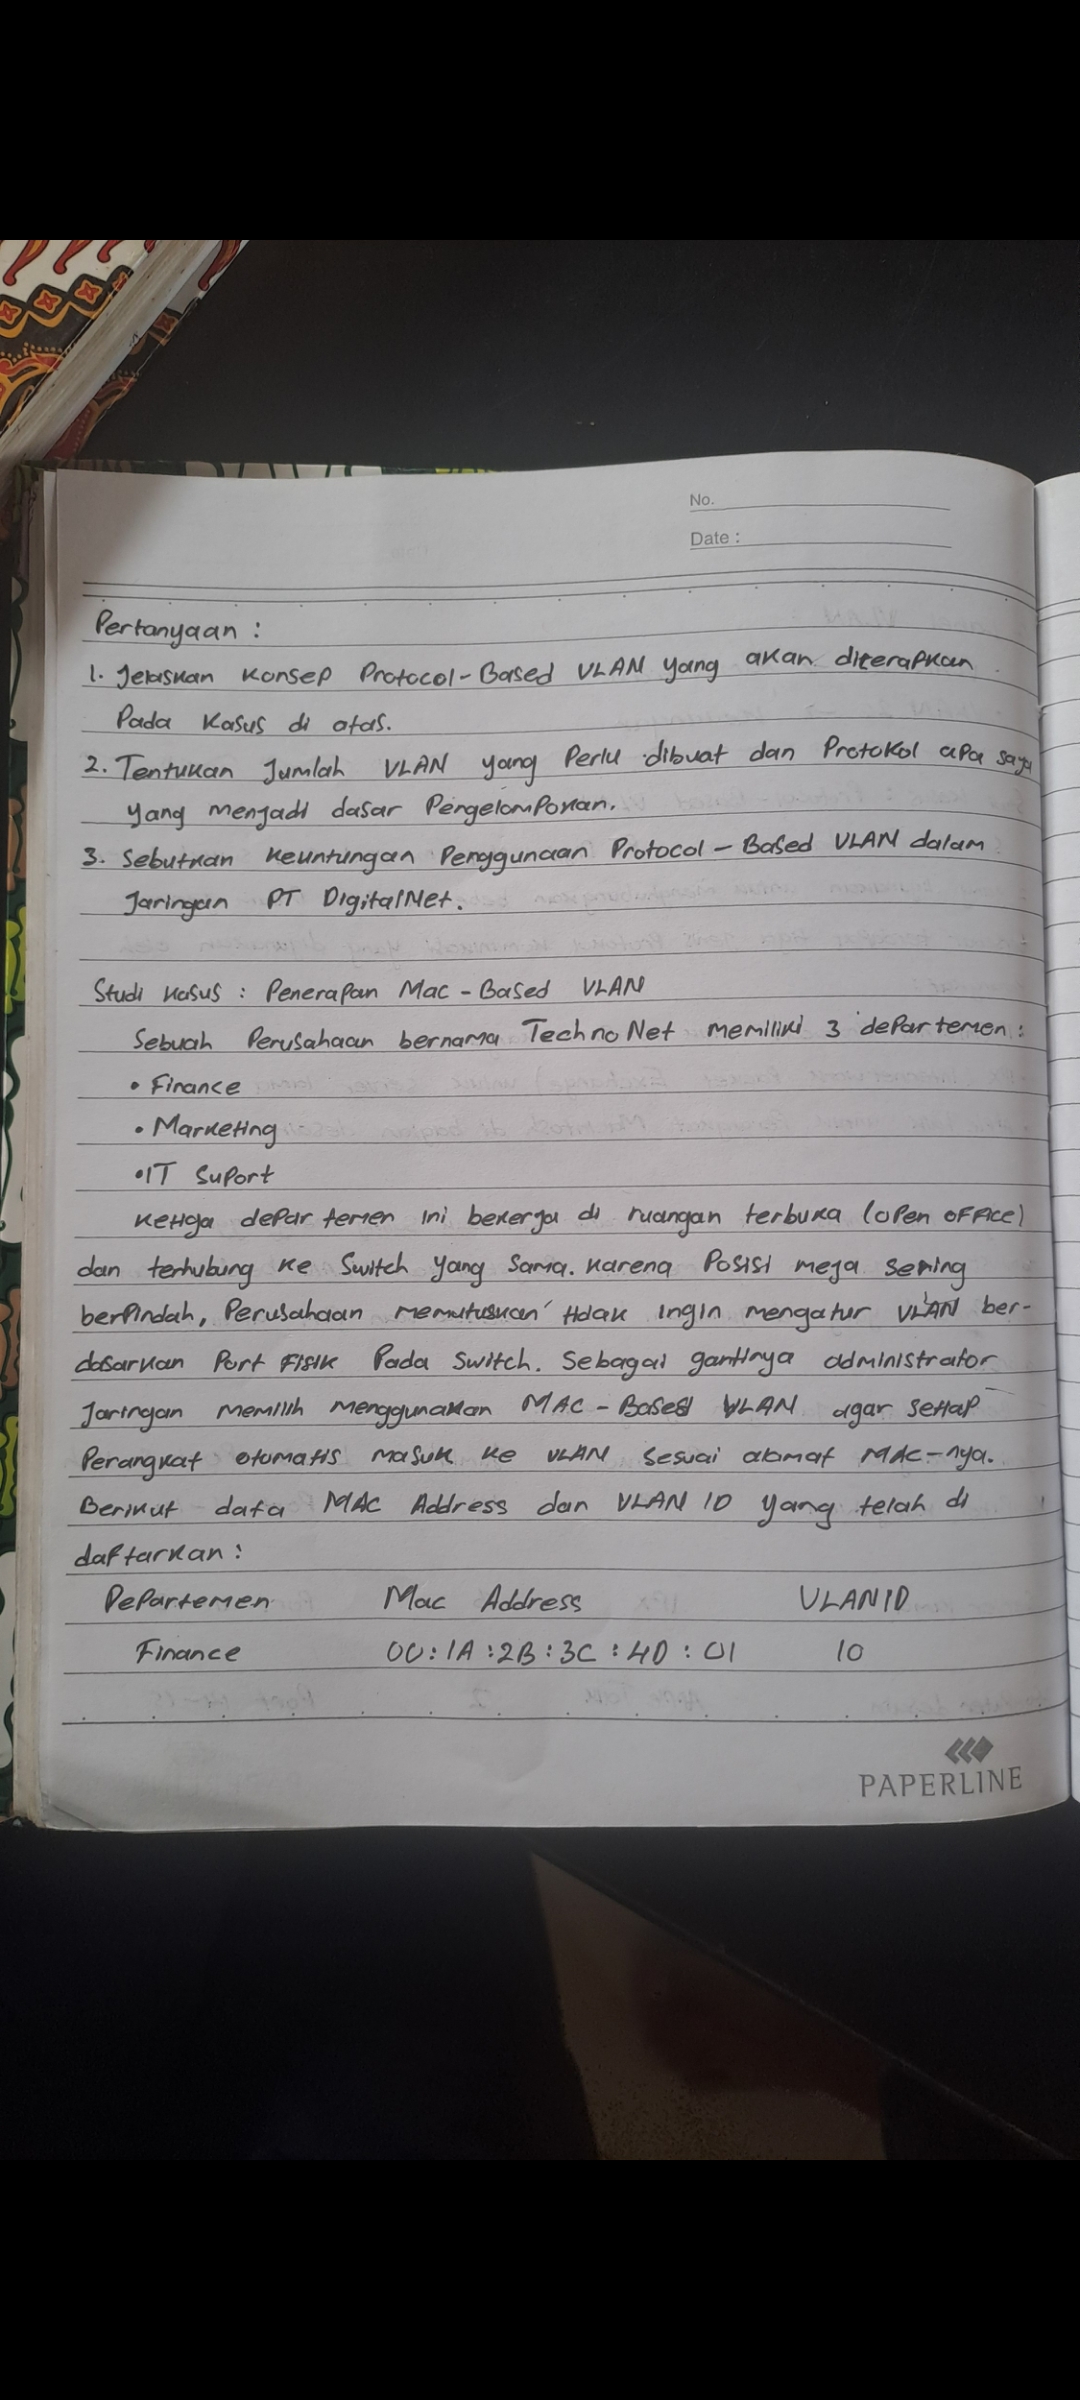 No.
Date :
Pertanyaan :
1. Jelaskan Konsep Protocol-Based VLAN yang akan diterapkan
Pada Kasus di atas.
2. Tentukan Jumlah VLAN yang Perlu dibuat dan Protokol apa saja
yang menjadi dasar Pengelompokan.
3. Sebutkan keuntungan Penggunaan Protocol-Based VLAN dalam
Jaringan PT DigitalNet.
Studi Kasus : Penerapan Mac-Based VLAN
Sebuah Perusahaan bernama TechnoNet memiliki 3 departemen :
• Finance
• Marketing
• IT Suport
Ketiga departemen ini bekerja di ruangan terbuka (open office)
dan terhubung ke Switch yang sama. Karena Posisi meja sering
berpindah, Perusahaan memutuskan tidak ingin mengatur VLAN ber-
dasarkan Port Fisik Pada Switch. Sebagai gantinya administrator
Jaringan memilih menggunakan MAC-Based VLAN agar setiap
Perangkat otomatis masuk ke VLAN sesuai alamat MAC-nya.
Berikut data MAC Address dan VLAN ID yang telah di
daftarkan :
Departemen Mac Address VLAN ID
Finance 00:1A:2B:3C:4D:01 10
PAPERLINE